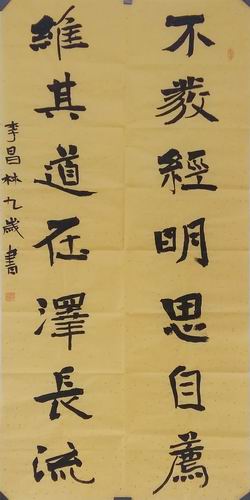 不經明思自薦
維其道在澤長流
李昌林九歲書